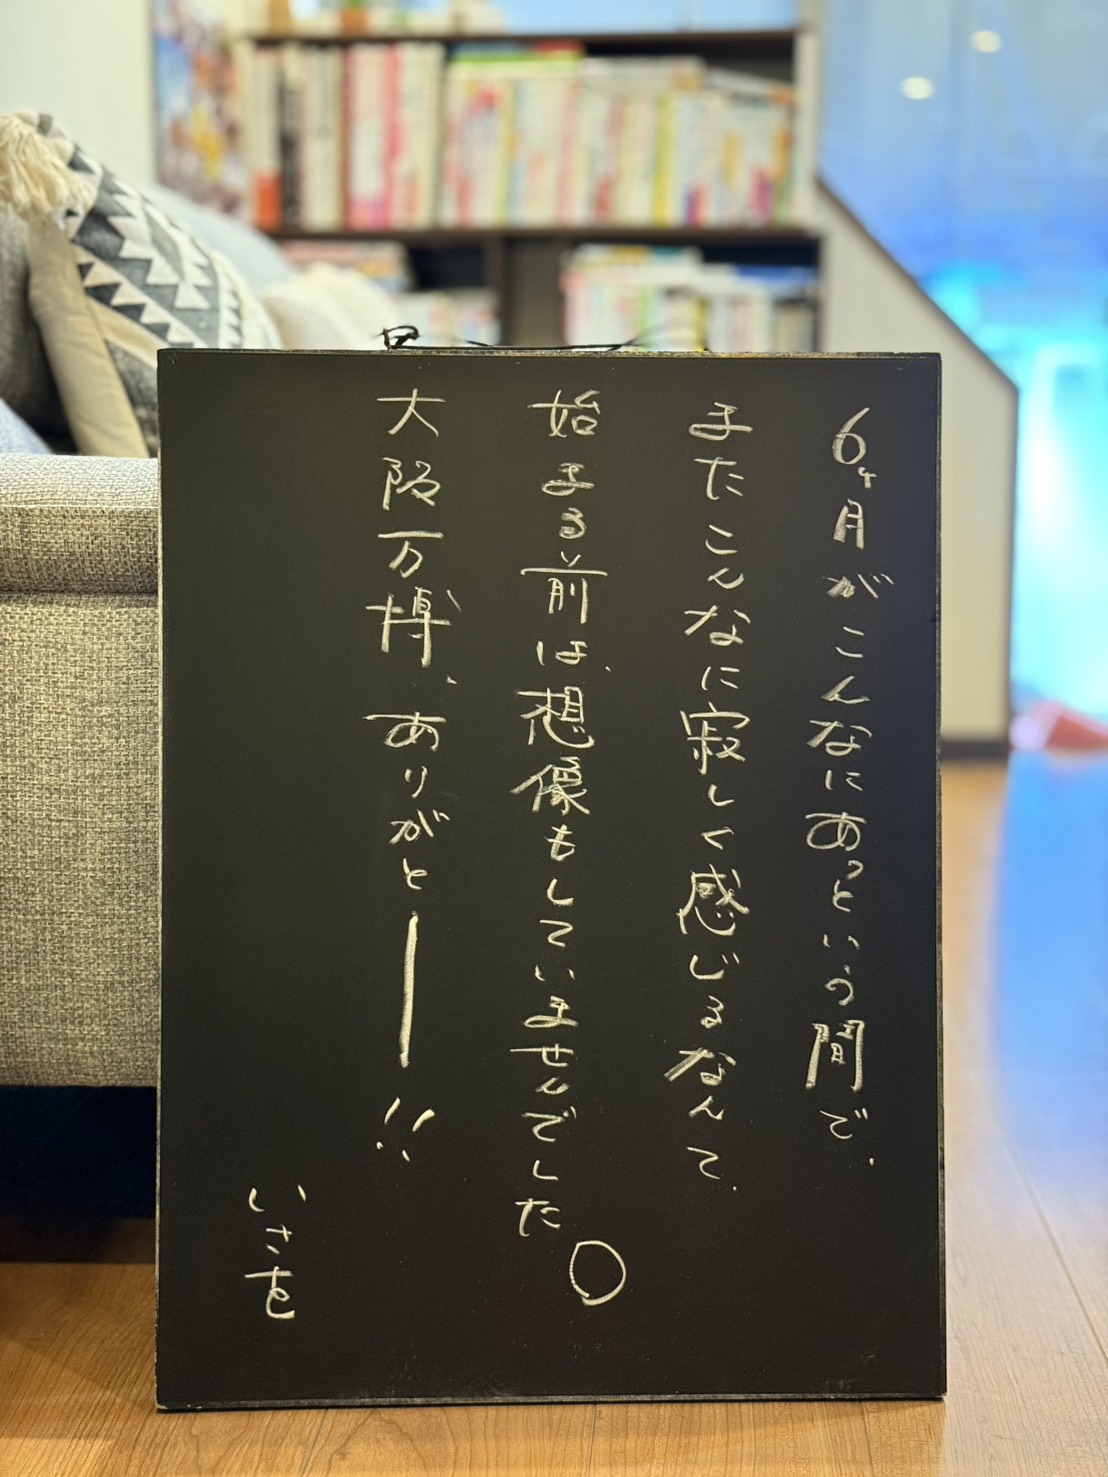 6ヶ月がこんなにあっという間で、
またこんなに寂しく感じるなんて、
始まる前は、想像もしていませんでした。
大阪万博、ありがとー!!
いさを